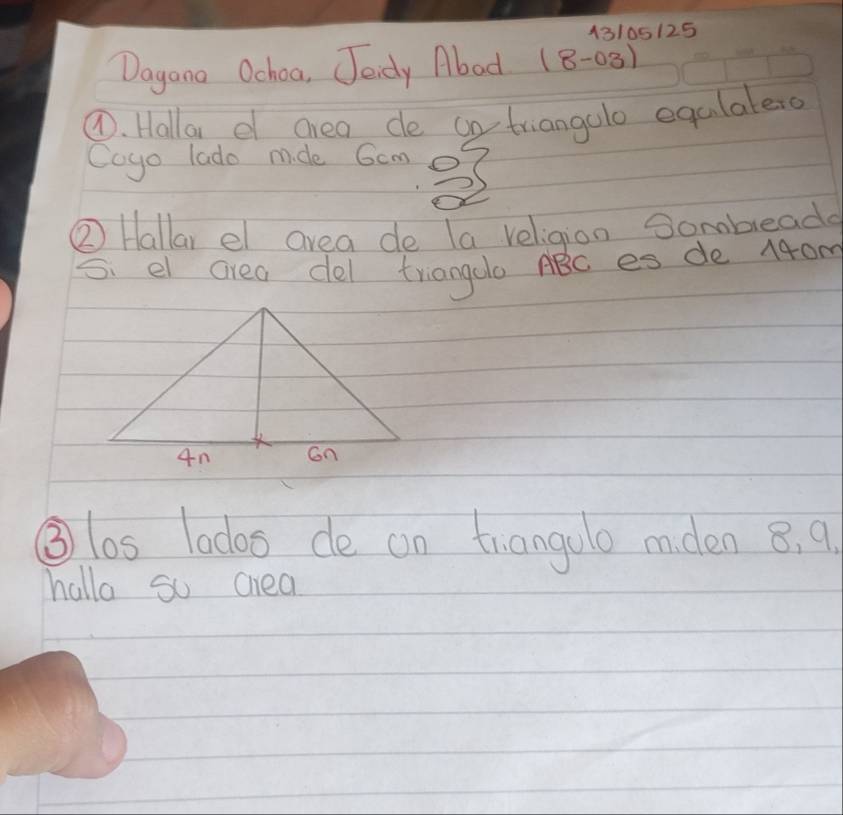 13/05/25
Dayana Ochoa, Jeidy Abad (8-03)
①. Hallar el area de un triangulo equlatero
Cuyo lado mide 6cm
② Hallar el area de la religion Sombreado
Si el area del triangulo ABC es de 140m
4n 6n
③ los lados de un triangulo miden 8, 9,
halla su area